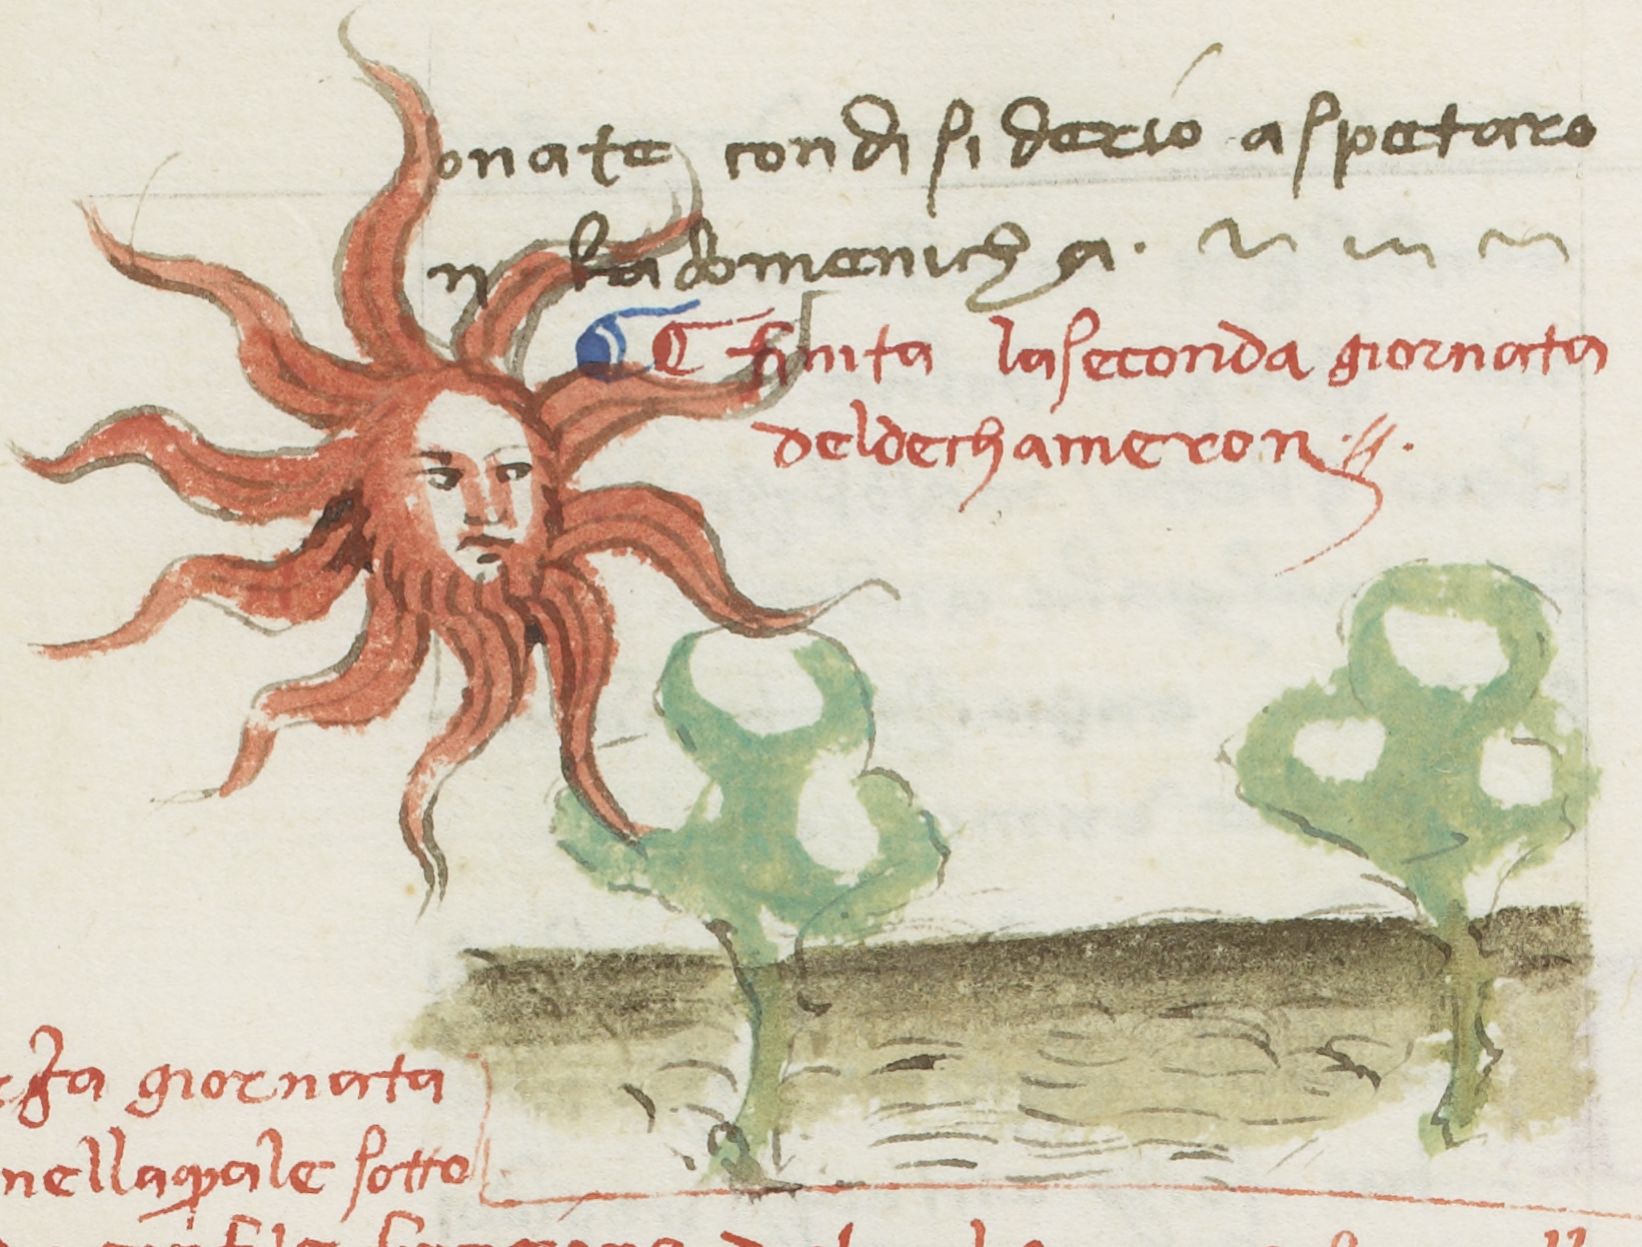 onate con disiderio aspetaro
n la domenicha.
finita la seconda giornata
del dechameron
rza giornata
nella quale sotto